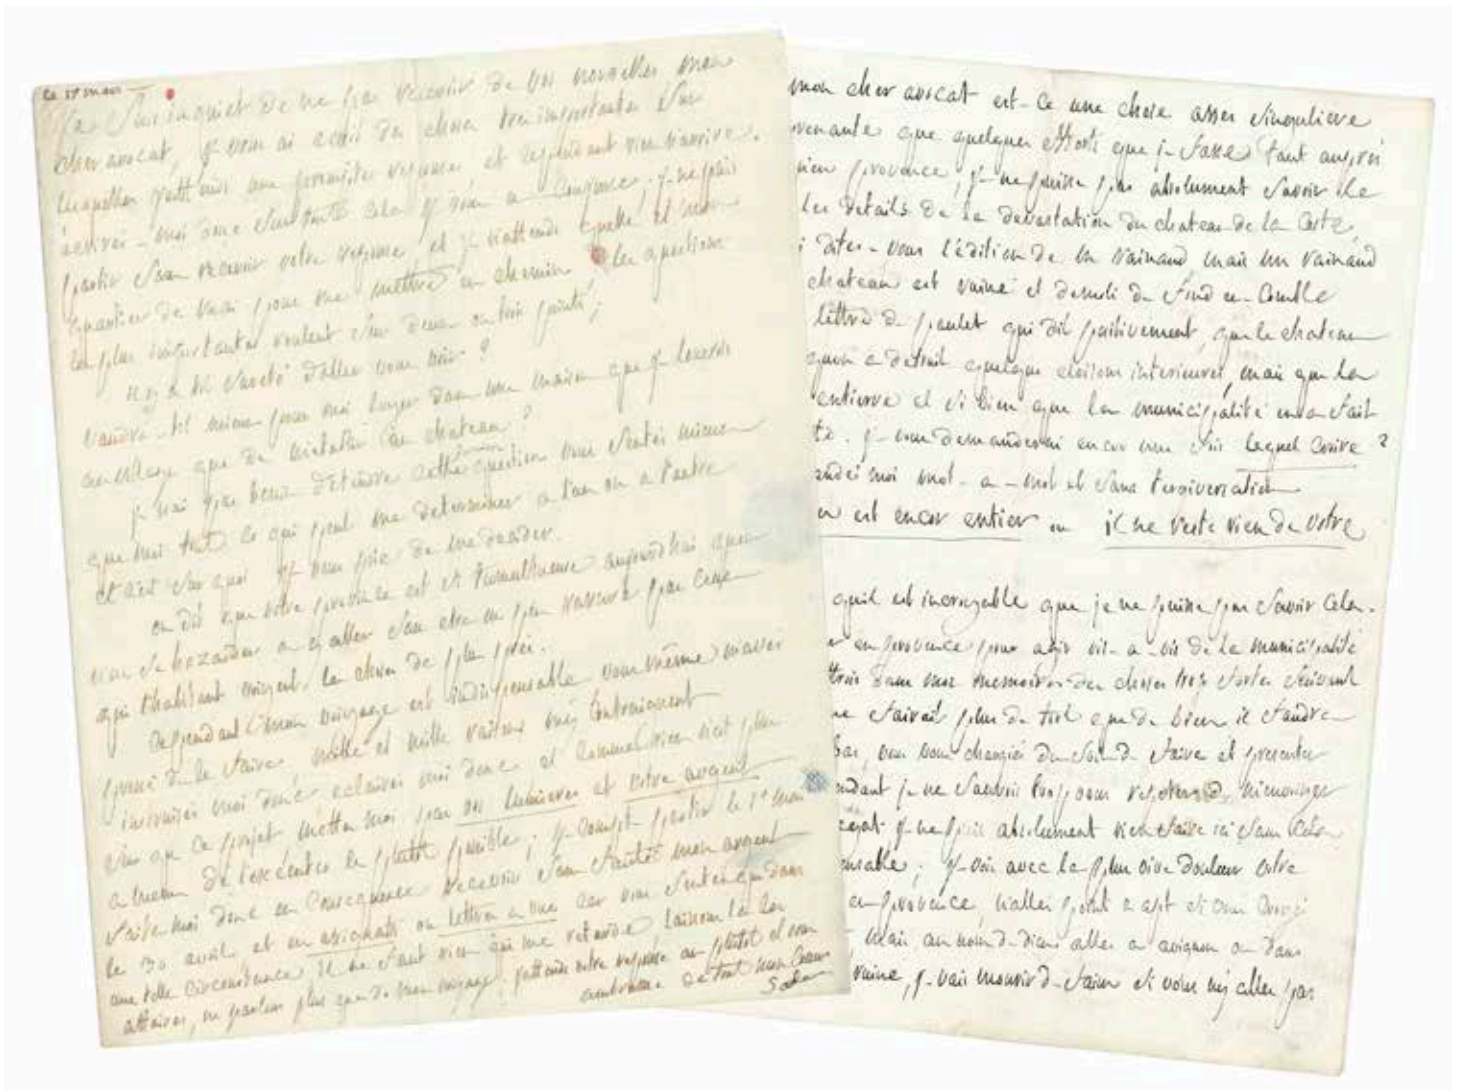 ce 15 mars
Je suis inquiet de ne pas recevoir de vos nouvelles mon
cher avocat, je vous ai ecrit des choses tres importantes sur
lesquelles j'attends une prompte reponse et cependant rien n'arrive.
ecrivés-moi donc sur toute cela je vous en conjure. je ne puis
partir sans recevoir votre reponse, et je n'attends qu'elle et mon
quartier de mai pour me mettre en chemin les questions
les plus importantes roulent sur deux ou trois points;
il y a t-il sureté d'aller vous voir?
vaudra-t-il mieux pour moi loger dans une maison que je louerois
au village que de m'etablir au chateau?
je n'ai pas besoin d'etendre cette question vous sentés mieux
que moi tout ce qui peut me determiner a l'un ou a l'autre
et c'est sur quoi je vous prie de me decider.
on dit que votre province est si tumultueuse aujourdhui que
vous se hazarder a y aller sans etre un peu rassuré par ceux
qui l'habitant voiyent les choses de plus près.
cependant mon voiyage est indispensable vous même m'avés
pressé de le faire mille et mille raisons m'y contraignent
instruisés moi donc eclairés moi donc et comme rien n'est plus
sur que ce projet mettes moi par vos lumieres et votre argent
a meme de l'executer le plutot possible; je compte partir le 1er mai
faites moi donc en consequence recevoir sans faute mon argent
le 30 avril et en assignats ou lettres a vue car vous sentés que dans
une telle circonstance il ne faut rien qui me retarde laissons la les
affaires, ne parlons plus que de mon voiyage. j'attends votre reponse au plutot et vous
embrasse de tout mon cœur
Sade
mon cher avocat est-ce une chose assés singuliere
venante que quelques efforts que je fasse tant auprès
en provence, je ne puisse pas absolument savoir le
les details de la devastation du chateau de la Coste,
dites-vous l'édition de Mr Rainaud, mais Mr Rainaud
chateau est ruiné et demoli de fond en comble
lettre de paulet qui dit positivement, que le chateau
qu'on a detruit quelques cloisons interieures, mais que la
entierre et si bien que la municipalité en a fait
je vous demanderai encor une fois lequel croire?
mandés moi mot-a-mot et sans tergiversation
est encor entier ou il ne reste rien de votre
quil est incroyable que je ne puisse pas savoir cela.
en provence pour agir vis-a-vis de la municipalité
dans mes memoires des choses trop fortes
me fairait plus de tort que de bien il faudra
bas, vous vous chargiés du soin de faire et presenter
je ne saurois trop vous repeter
je ne puis absolument rien faire ici sans cela
; je vois avec la plus vive douleur votre
en provence, n'allés point a apt si vous
mais au nom de dieu allés a avignon ou dans
ruine, je vais mourir de faim si vous n'y allés pas